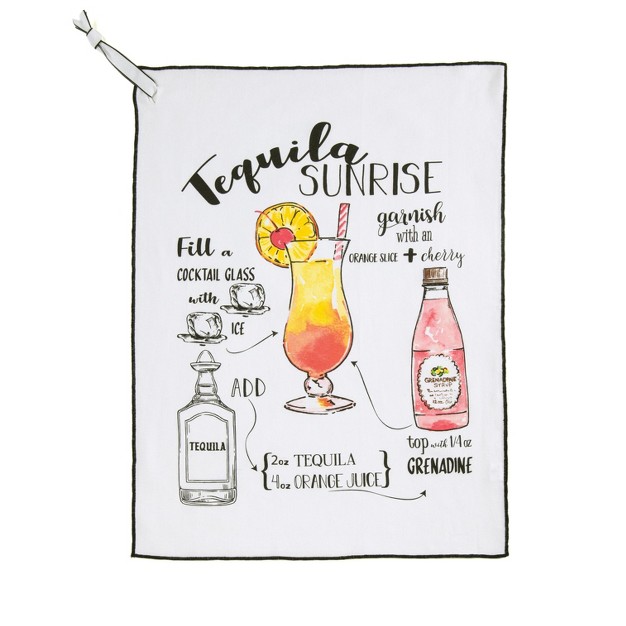 Tequila
SUNRISE
garnish
with an
ORANGE SLICE + cherry
Fill a
COCKTAIL GLASS
with
ICE
ADD
TEQUILA
GRENADINE
SYRUP
{2oz TEQUILA
4oz ORANGE JUICE}
top with 1/4 oz
GRENADINE